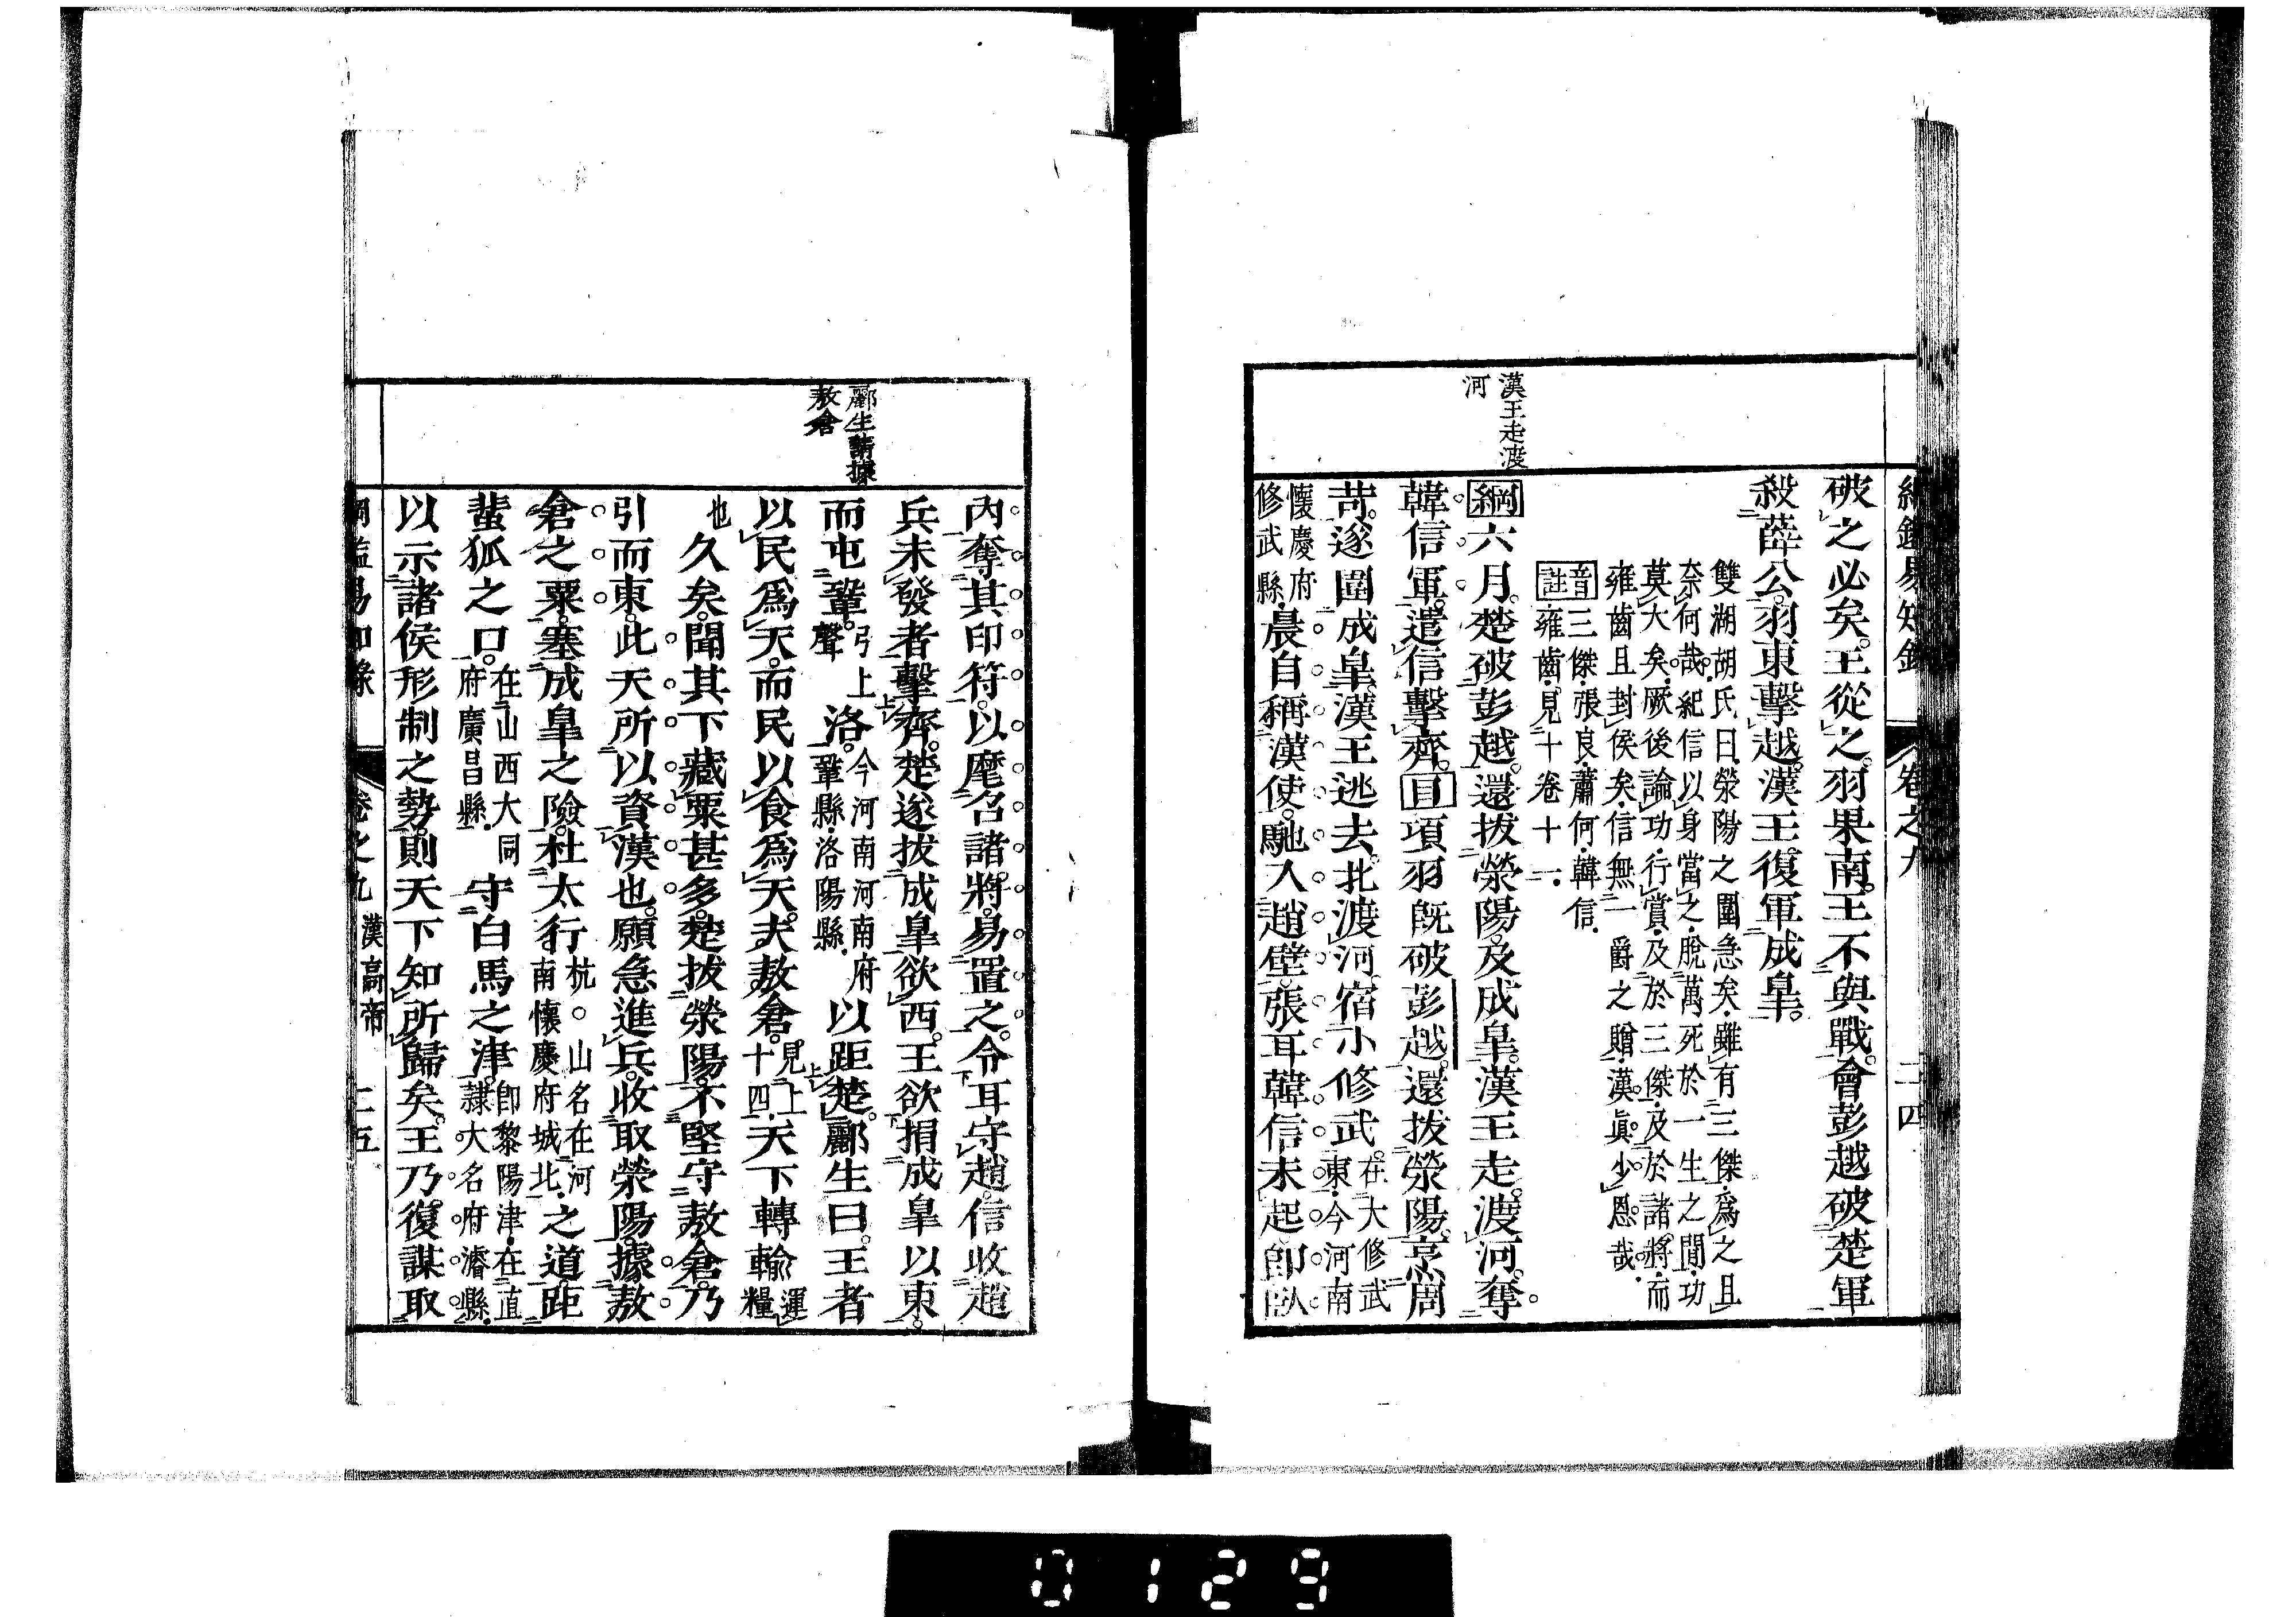 綱鑑易知錄 卷之九 二四
破之必矣。王從之。羽果南。王不與戰。會彭越破楚軍
殺薛公。羽東擊越。漢王復軍成皐。
雙湖胡氏曰。滎陽之圍急矣。雖有三傑。爲之且
奈何哉。紀信以身當之。脫萬死於一生之間。功
莫大矣。厥後論功行賞。及於三傑。及於諸將。而
雍齒且封侯矣。信無一爵之贈。漢眞少恩哉。
音註 三傑。張良。蕭何。韓信。
雍齒。見十卷十一。
漢王走渡
河
綱 六月。楚破彭越。還拔滎陽。及成皐。漢王走。渡河。奪
韓信軍。遣信擊齊。目 項羽旣破彭越。還拔滎陽。烹周
苛。遂圍成皐。漢王逃去。北渡河。宿小修武。在大修武
東。今河南
懷慶府
修武縣。晨自稱漢使。馳入趙壁。張耳韓信未起。卽臥
內奪其印符。以麾召諸將。易置之。令耳守趙。信收趙
兵未發者擊齊。楚遂拔成皐。欲西。王欲捐成皐以東。
酈生請據
敖倉
而屯鞏。弓上
聲 洛。今河南河南府
鞏縣。洛陽縣。 以距楚。酈生曰。王者
以民爲天。而民以食爲天。夫敖倉。見上
十四。天下轉輸 運
糧
也 久矣。聞其下藏粟甚多。楚拔滎陽。不堅守敖倉。乃
引而東。此天所以資漢也。願急進兵。收取滎陽。據敖
倉之粟。塞成皐之險。杜太行 杭。山名在河
南懷慶府城北。之道。距
蜚狐之口。在山西大同
府廣昌縣。 守白馬之津。卽黎陽津。在直
隷大名府濬縣。
以示諸侯形制之勢。則天下知所歸矣。王乃復謀取
綱鑑易知錄 卷之九 漢高帝 二五
0129